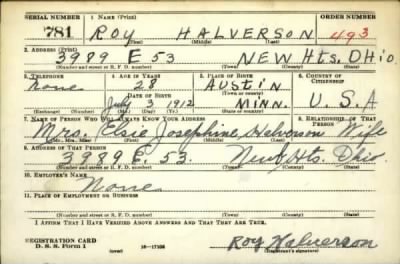 SERIAL NUMBER 1. NAME (Print) ORDER NUMBER
781 ROY HALVERSON 493
(First) (Middle) (Last)
2. ADDRESS (Print)
3989 E. 53 NEW Hts. OHio.
(Number and street or R. F. D. number) (Town) (County) (State)
3. TELEPHONE 4. AGE IN YEARS 5. PLACE OF BIRTH 6. COUNTRY OF CITIZENSHIP
None. 28 AUSTIN
DATE OF BIRTH (Town or county)
July 3 1912 MINN. U. S. A
(Exchange) (Number) (Mo.) (Day) (Yr.) (State or country)
7. NAME OF PERSON WHO WILL ALWAYS KNOW YOUR ADDRESS 8. RELATIONSHIP OF THAT PERSON
Mrs. Elsie Josephine Halverson Wife
(Mr., Mrs., Miss) (First) (Middle) (Last)
9. ADDRESS OF THAT PERSON
3989 E. 53. New Hts. Ohio
(Number and street or R. F. D. number) (Town) (County) (State)
10. EMPLOYER'S NAME
None
11. PLACE OF EMPLOYMENT OR BUSINESS
(Number and street or R. F. D. number) (Town) (County) (State)
I AFFIRM THAT I HAVE VERIFIED ABOVE ANSWERS AND THAT THEY ARE TRUE.
REGISTRATION CARD
D. S. S. Form 1 (over) 16—17105 Roy Halverson
(Registrant's signature)